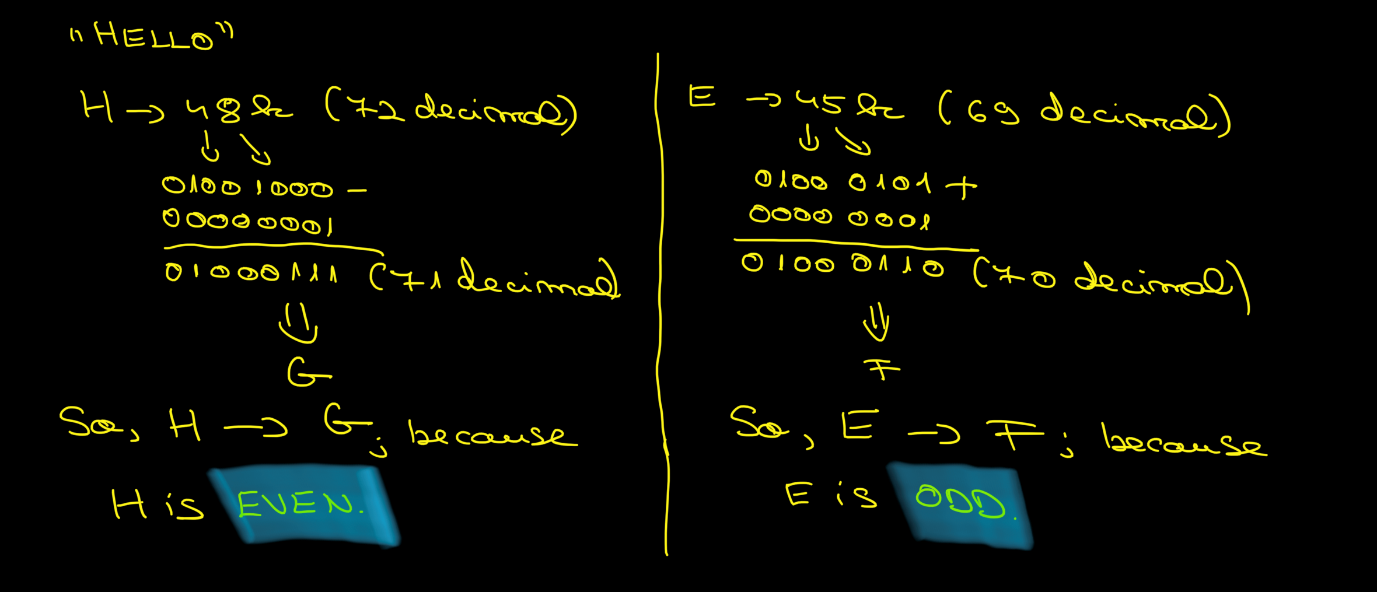 "HELLO"
H → 48h (72 decimal)
↓ ↘
01001000 -
00000001
01000111 (71 decimal)
⇓
G
So, H → G; because
H is EVEN.
E → 45h (69 decimal)
↓ ↘
0100 0101 +
0000 0001
0100 0110 (70 decimal)
⇓
F
So, E → F; because
E is ODD.